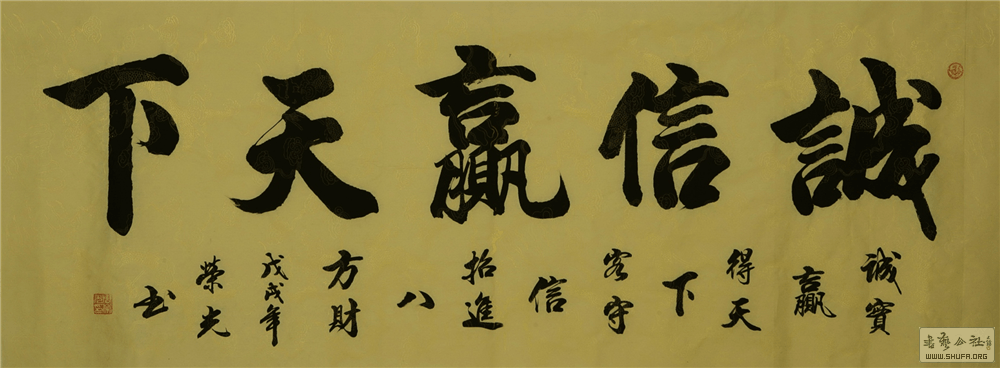 誠信贏天下
誠實
贏
得天
下
客守
信
招進
八
方財
戊戌年
榮光
书
WWW.SHUFA.ORG